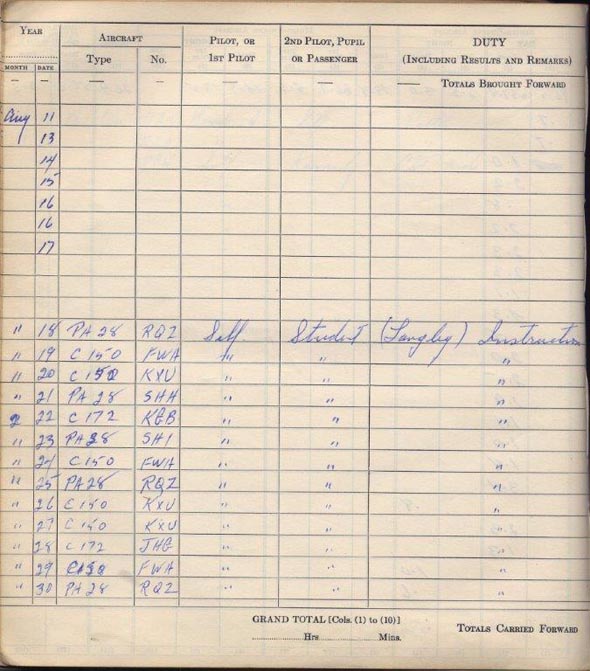 YEAR AIRCRAFT PILOT, OR 2ND PILOT, PUPIL DUTY
MONTH DATE Type No. 1ST PILOT OR PASSENGER (INCLUDING RESULTS AND REMARKS)
— — — — — — — TOTALS BROUGHT FORWARD
Aug 11
13
14
15
16
16
17
" 18 PA 28 RQZ Self Student (Langley) Instruction
" 19 C 150 FWA " " "
" 20 C 150 KXU " " "
" 21 PA 28 SHH " " "
22 C 172 KGB " " "
" 23 PA 28 SHI " " "
" 24 C 150 FWA " " "
" 25 PA 28 RQZ " " "
" 26 C 150 KXU " " "
" 27 C 150 KXU " " "
" 28 C 172 JHG " " "
" 29 C150 FWA " " "
" 30 PA 28 RQZ " " "
GRAND TOTAL [Cols. (1) to (10)]
Hrs. Mins. TOTALS CARRIED FORWARD